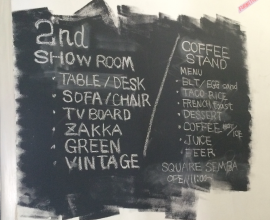 2nd
SHOWROOM
・TABLE/DESK
・SOFA/CHAIR
・TV BOARD
・ZAKKA
・GREEN
VINTAGE
COFFEE
STAND
MENU
・BLT/
・TACO RICE
・FRENCH toast
・DESSERT
・COFFEE HOT/ICE
・JUICE
・BEER
SQUARE SEMBA
OPEN